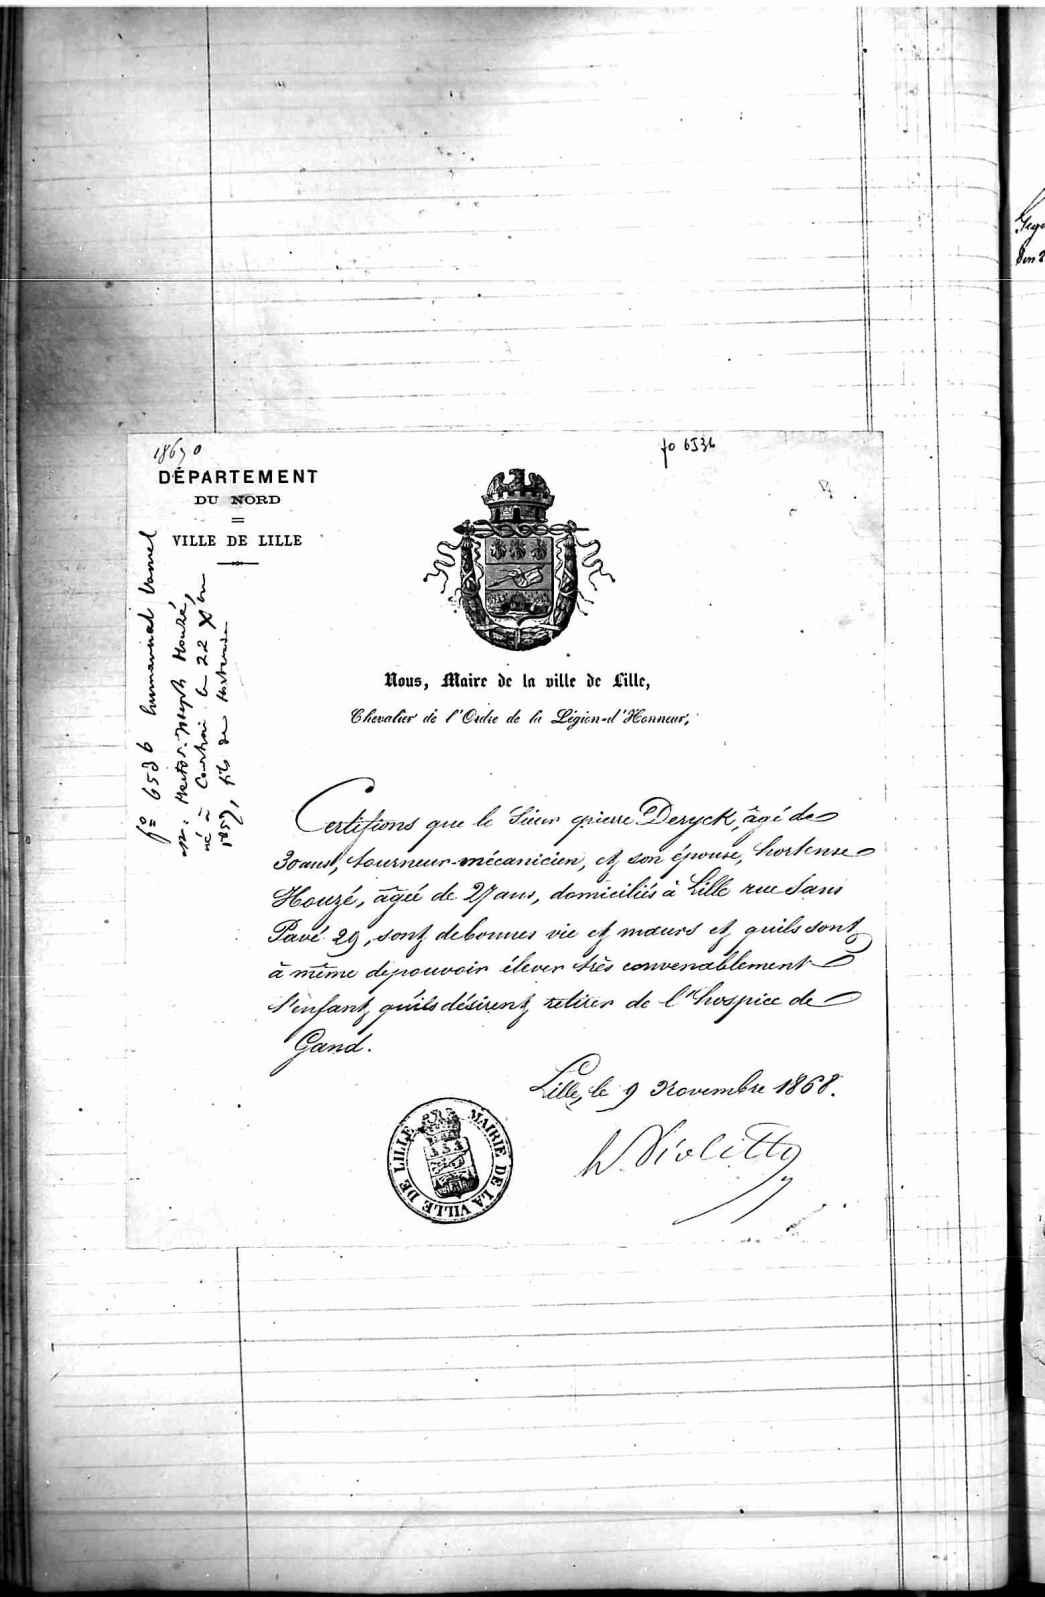 fo 6536
DÉPARTEMENT
DU NORD
VILLE DE LILLE
Nous, Maire de la ville de Lille,
Chevalier de l'Ordre de la Légion-d'Honneur,
Certifions que le Sieur pierre Deryck, âgé de
30 ans, tourneur-mécanicien, et son épouse, hortense
Houzé, âgée de 27 ans, domiciliés à Lille rue Sans
Pavé 29, sont de bonnes vie et mœurs et qu'ils sont
à même de pouvoir élever très convenablement
l'enfant qu'ils désirent retirer de l'hospice de
Gand.
Lille, le 9 Novembre 1868.
MAIRIE DE LA VILLE DE LILLE
fo 6536
Houzé,
né à Courtrai le 22 Xbre
1859, fils de Hortense